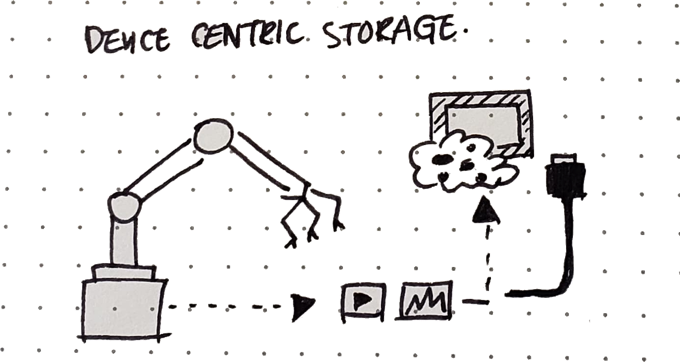 DEVICE CENTRIC STORAGE.